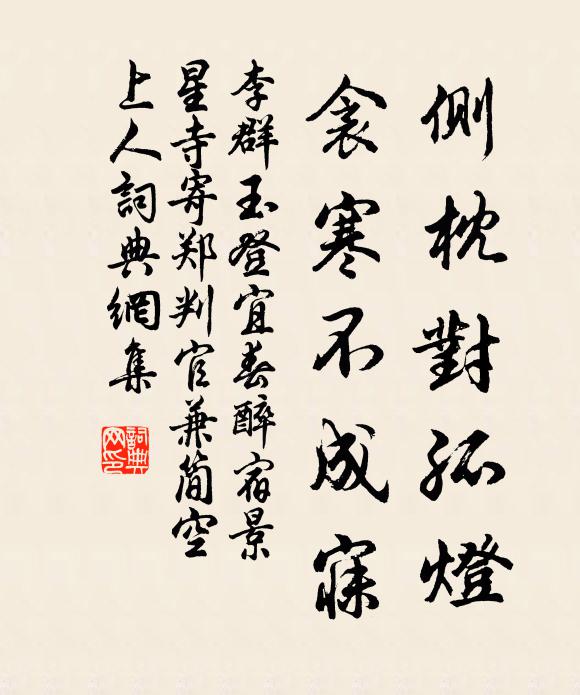 側枕對孤燈
衾寒不成寐
李群玉登宜春醉宿景
星寺寄郑判官兼简空
上人詞典網集
詞典网印